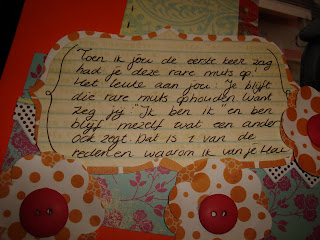 Toen ik jou de eerste keer zag
had je deze rare muts op!
Het leuke aan jou: Je blijft
die rare muts ophouden want
Zeg jij: "Ik ben ik en ben
blijf mezelf wat een ander
ook zegt. Dat is 1 van de
redenen waarom ik van je